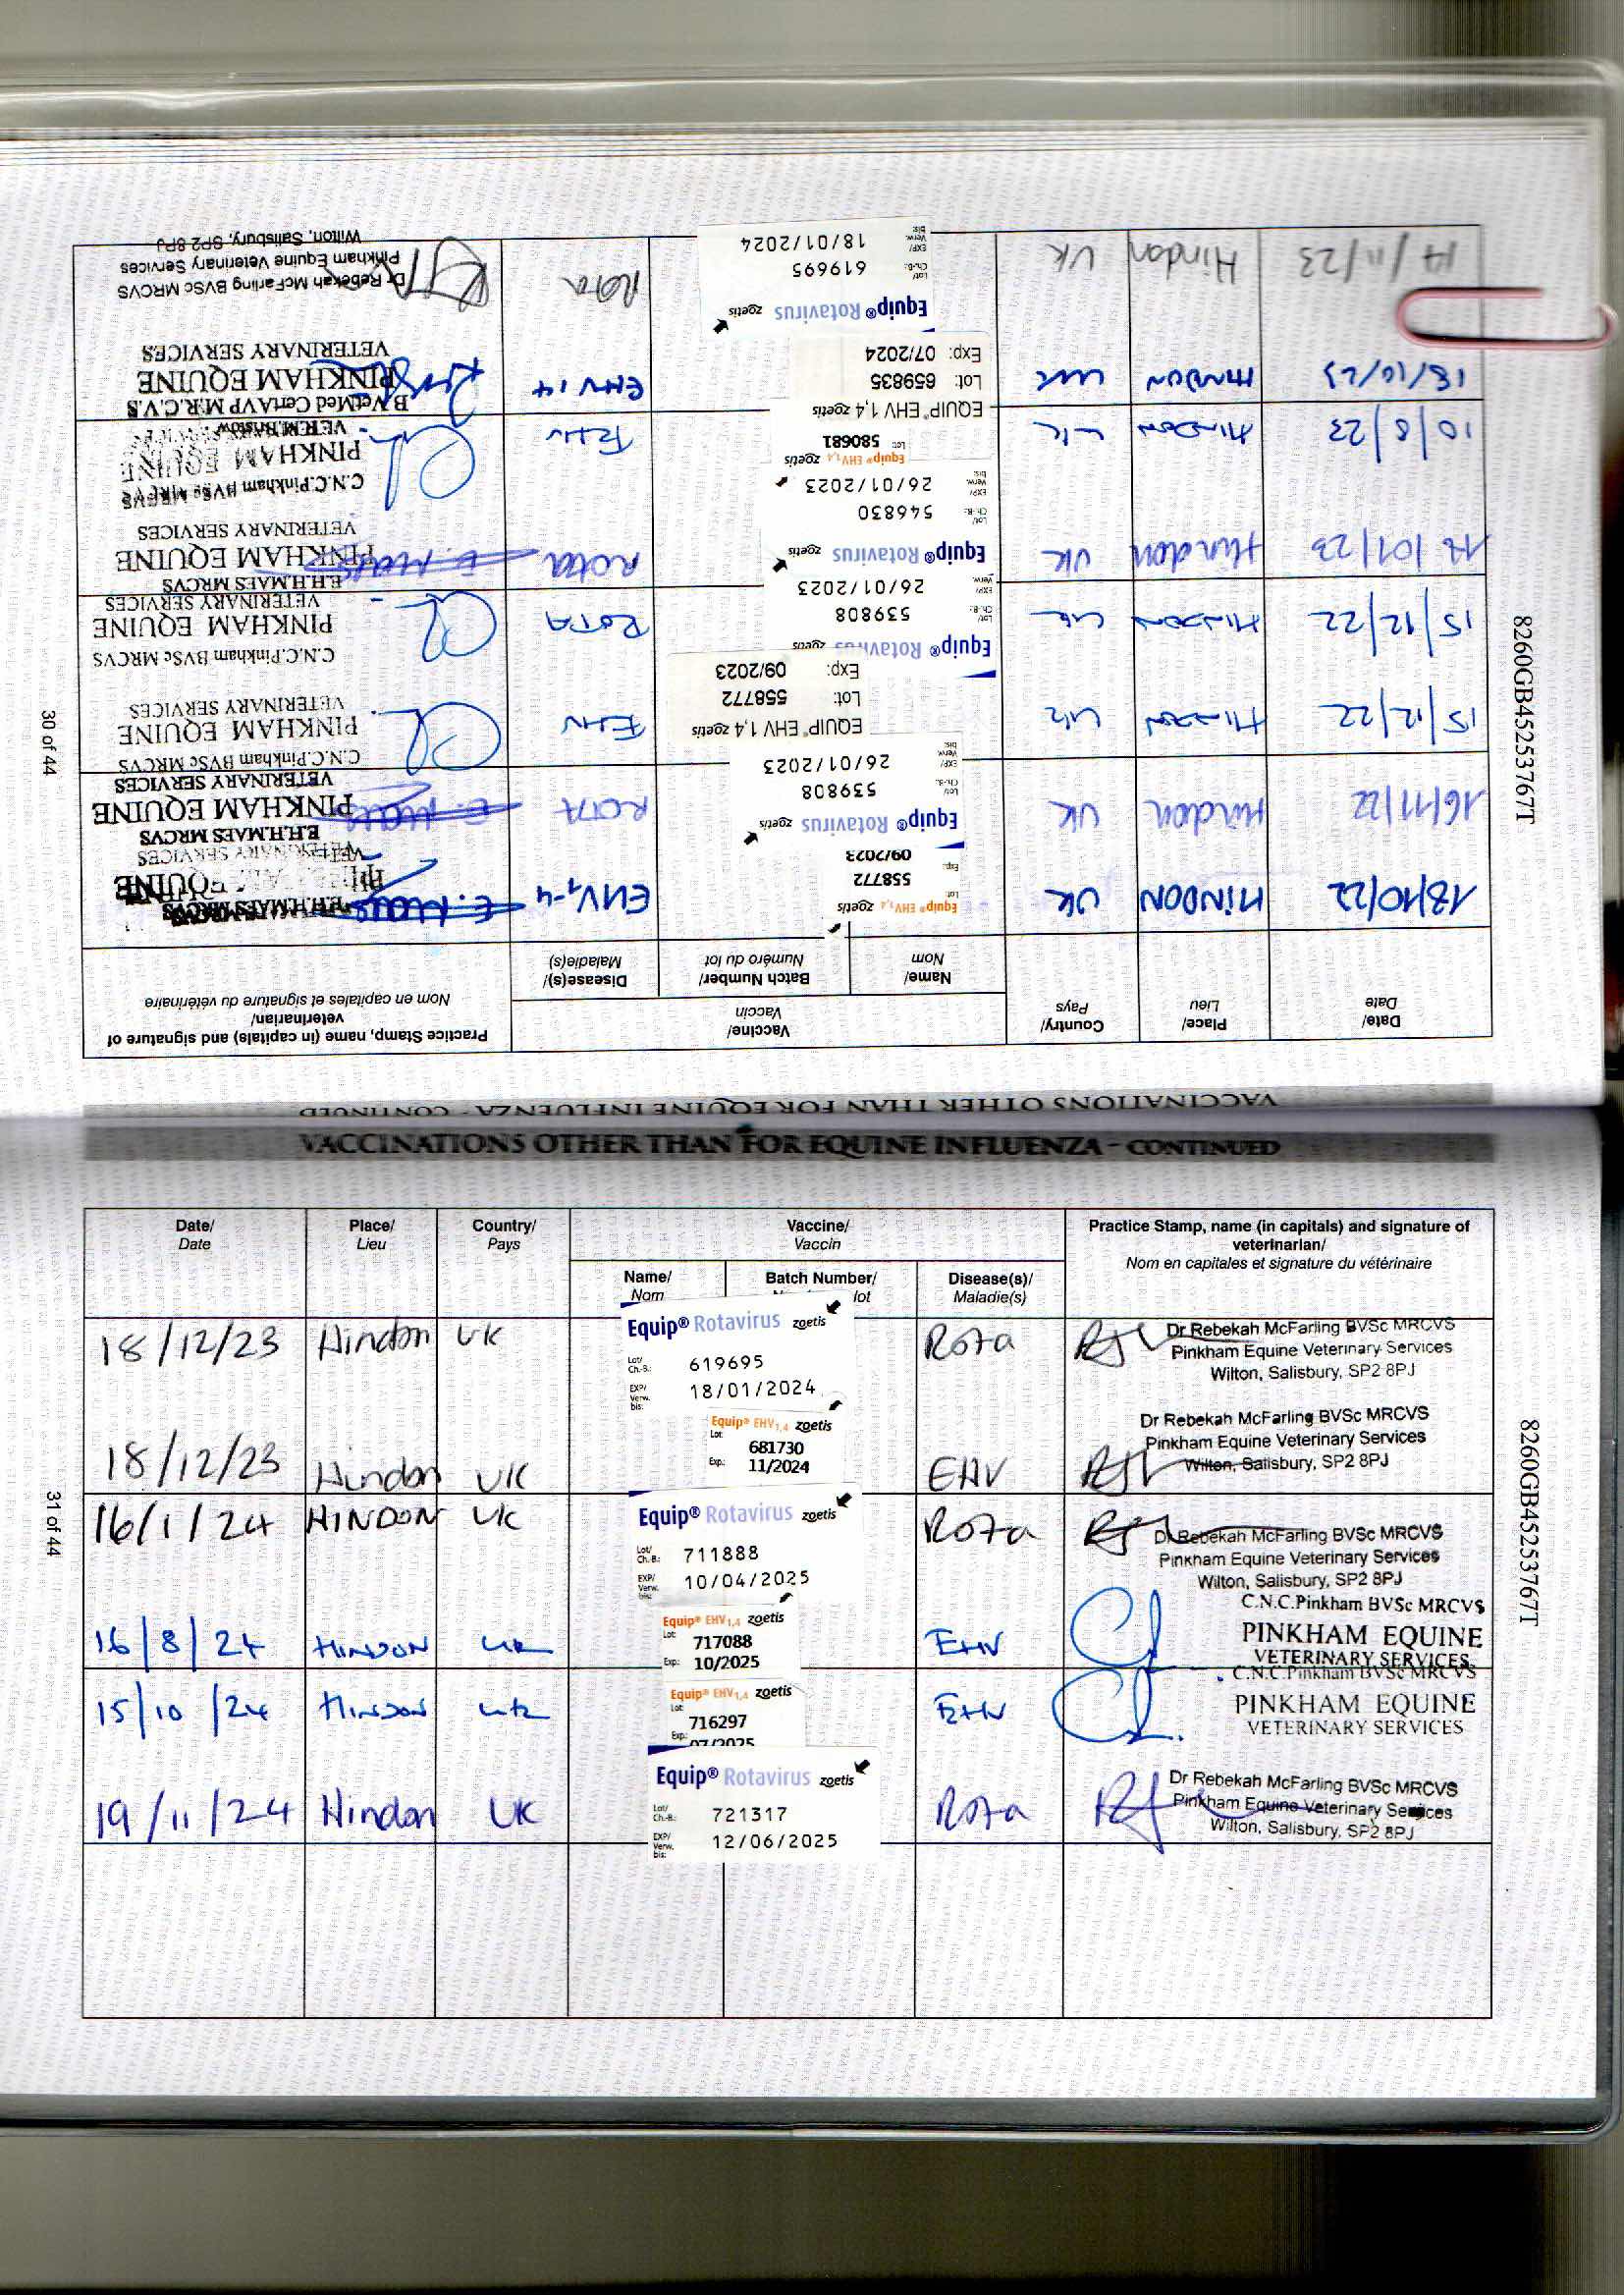 VACCINATIONS OTHER THAN FOR EQUINE INFLUENZA - CONTINUED
Date/ Date
Place/ Lieu
Country/ Pays
Vaccine/ Vaccin
Name/ Nom
Batch Number/ Numéro du lot
Disease(s)/ Maladie(s)
Practice Stamp, name (in capitals) and signature of
veterinarian/
Nom en capitales et signature du vétérinaire
18/10/22 HINDON UK
Equip® EHV1,4 zoetis
Lot: 558772
Exp: 09/2023
EHV1-4
E.H.H.MAES MRCVS
VETERINARY SERVICES
16/11/22 Hindon UK
Equip® Rotavirus zoetis
Lot/ Ch.-B.: 539808
EXP/ Verw. bis: 26/01/2023
ROTA
E.H.H.MAES MRCVS
PINKHAM EQUINE
VETERINARY SERVICES
15/12/22 HINDON UK
EQUIP® EHV 1,4 zoetis
Lot: 558772
Exp: 09/2023
EHV
C.N.C.Pinkham BVSc MRCVS
PINKHAM EQUINE
VETERINARY SERVICES
15/12/22 HINDON UK
Equip® Rotavirus zoetis
Lot/ Ch.-B.: 539808
EXP/ Verw. 26/01/2023
ROTA
C.N.C.Pinkham BVSc MRCVS
PINKHAM EQUINE
VETERINARY SERVICES
/01/23 Hindon UK
Equip® Rotavirus zoetis
Lot/ Ch.-B.: 546830
EXP/ Verw. bis: 26/01/2023
Rota
E.H.H.MAES MRCVS
PINKHAM EQUINE
VETERINARY SERVICES
10/8/23 HINDON UK
Equip® EHV1,4 zoetis
Lot: 580681
EHV
C.N.C.Pinkham BVSc MRCVS
PINKHAM EQUINE
18/10/23 HINDON UK
EQUIP® EHV 1,4 zoetis
Lot: 659835
Exp: 07/2024
EHV 14
B.VetMed CertAVP M.R.C.V.S
PINKHAM EQUINE
VETERINARY SERVICES
14/11/23 Hindon UK
Equip® Rotavirus zoetis
Lot/ Ch.-B.: 619695
EXP/ Verw. bis: 18/01/2024
Rota
Dr Rebekah McFarling BVSc MRCVS
Pinkham Equine Veterinary Services
Wilton, Salisbury, SP2 8PJ
30 of 44
8260GB45253767T
VACCINATIONS OTHER THAN FOR EQUINE INFLUENZA - CONTINUED
Date/ Date
Place/ Lieu
Country/ Pays
Vaccine/ Vaccin
Name/ Nom
Batch Number/ lot
Disease(s)/ Maladie(s)
Practice Stamp, name (in capitals) and signature of
veterinarian/
Nom en capitales et signature du vétérinaire
18/12/23 Hindon UK
Equip® Rotavirus zoetis
Lot/ Ch.-B.: 619695
EXP/ Verw. bis: 18/01/2024
Rota
Dr Rebekah McFarling BVSc MRCVS
Pinkham Equine Veterinary Services
Wilton, Salisbury, SP2 8PJ
18/12/23 Hindon UK
Equip® EHV1,4 zoetis
Lot: 681730
Exp.: 11/2024
EHV
Dr Rebekah McFarling BVSc MRCVS
Pinkham Equine Veterinary Services
Wilton, Salisbury, SP2 8PJ
16/1/24 HINDON UK
Equip® Rotavirus zoetis
Lot/ Ch.-B.: 711888
EXP/ Verw. bis: 10/04/2025
Rota
Dr Rebekah McFarling BVSc MRCVS
Pinkham Equine Veterinary Services
Wilton, Salisbury, SP2 8PJ
16/8/24 HINDON UK
Equip® EHV1,4 zoetis
Lot: 717088
Exp: 10/2025
EHV
C.N.C.Pinkham BVSc MRCVS
PINKHAM EQUINE
VETERINARY SERVICES
15/10/24 HINDON UK
Equip® EHV1,4 zoetis
Lot: 716297
Exp: 07/2025
EHV
C.N.C.Pinkham BVSc MRCVS
PINKHAM EQUINE
VETERINARY SERVICES
19/11/24 Hindon UK
Equip® Rotavirus zoetis
Lot/ Ch.-B.: 721317
EXP/ Verw. bis: 12/06/2025
Rota
Dr Rebekah McFarling BVSc MRCVS
Pinkham Equine Veterinary Services
Wilton, Salisbury, SP2 8PJ
31 of 44
8260GB45253767T